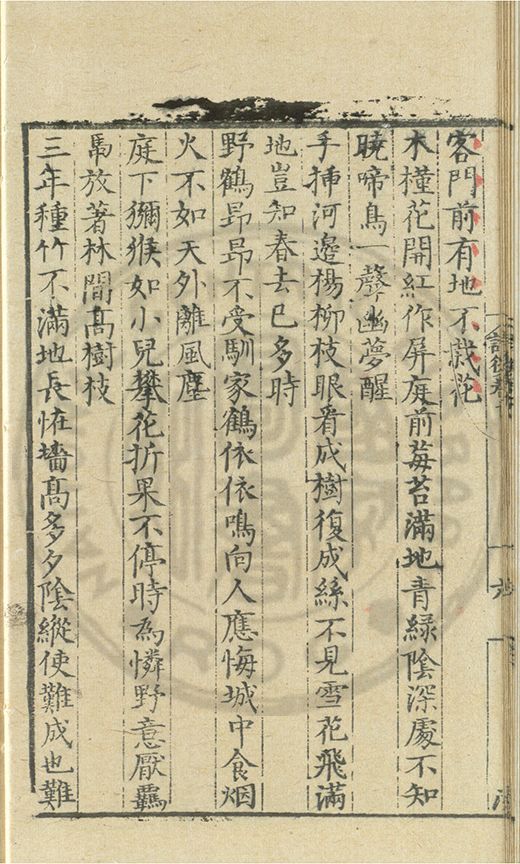 客門前有地不栽花
木槿花開紅作屏庭前莓苔滿地青綠陰深處不知
曉啼鳥一聲幽夢醒
手揷河邊楊柳枝眼看成樹復成絲不見雪花飛滿
地豈知春去已多時
野鶴昻昻不受馴家鶴依依鳴向人應悔城中食烟
火不如天外離風塵
庭下獼猴如小兒攀花折果不停時為憐野意厭羈
馬放著林間髙樹枝
三年種竹不滿地長恠墻髙多夕陰縱使難成也難